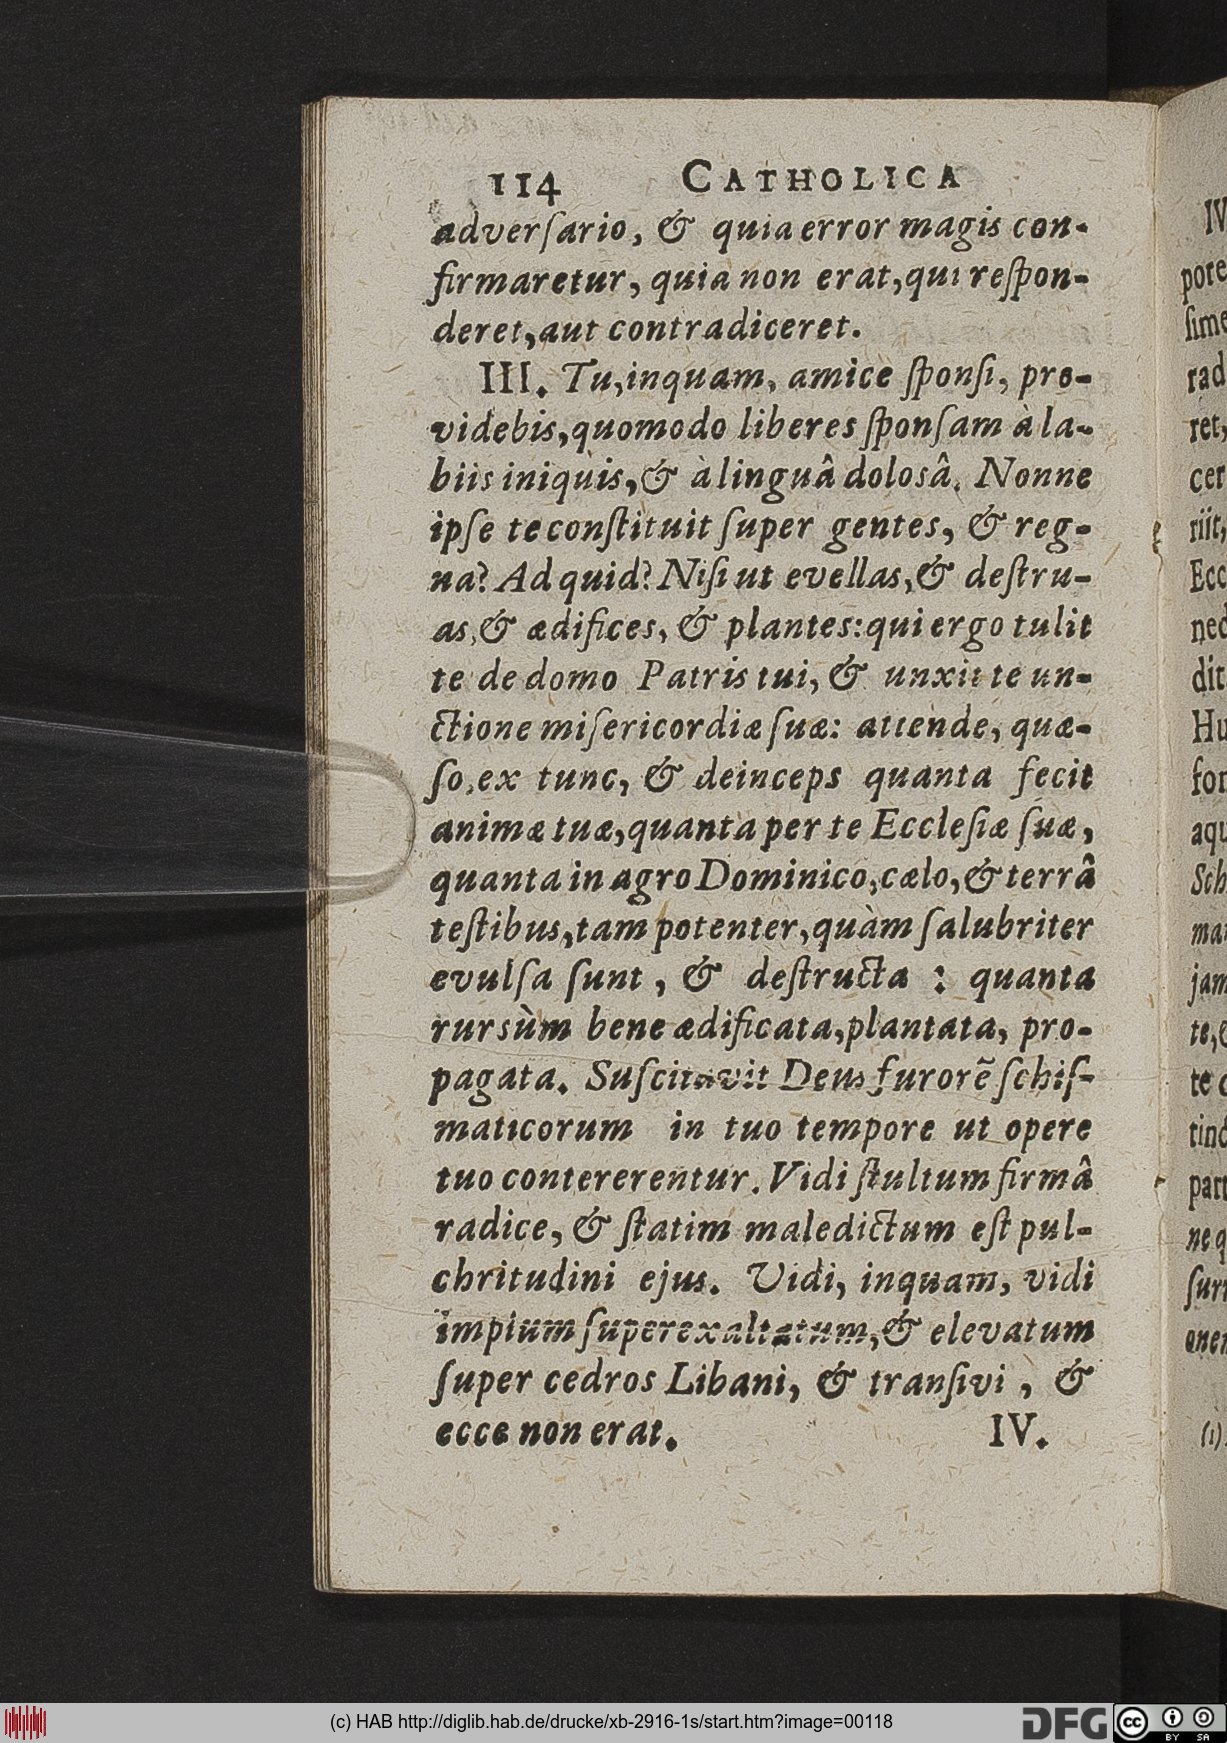 114 CATHOLICA
adverſario, & quia error magis con-
firmaretur, quia non erat, qui reſpon-
deret, aut contradiceret.
III. Tu, inquam, amice ſponſi, pro-
videbis, quomodo liberes ſponſam à la-
biis iniquis, & à linguâ dolosâ. Nonne
ipſe te conſtituit ſuper gentes, & reg-
na? Ad quid? Niſi ut evellas, & deſtru-
as, & ædifices, & plantes: qui ergo tulit
te de domo Patris tui, & unxit te un-
ctione miſericordiæ ſuæ: attende, quæ-
ſo, ex tunc, & deinceps quanta fecit
animæ tuæ, quanta per te Eccleſiæ ſuæ,
quanta in agro Dominico, cælo, & terrâ
teſtibus, tam potenter, quàm ſalubriter
evulſa ſunt, & deſtructa : quanta
rursùm bene ædificata, plantata, pro-
pagata. Suſcitavit Deus furorẽ ſchiſ-
maticorum in tuo tempore ut opere
tuo contererentur. Vidi ſtultum firmâ
radice, & ſtatim maledictum eſt pul-
chritudini ejus. Vidi, inquam, vidi
impium ſuperexaltatum, & elevatum
ſuper cedros Libani, & tranſivi, &
ecce non erat. IV.
IV
pore
ſime
rad
ret,
cer
riit,
Ecc
nec
dit
Hu
for
aqu
Sch
mat
jam
te,
te
tinc
part
ne q
ſur
oner
(1)
(c) HAB http://diglib.hab.de/drucke/xb-2916-1s/start.htm?image=00118
DFG
cc BY SA